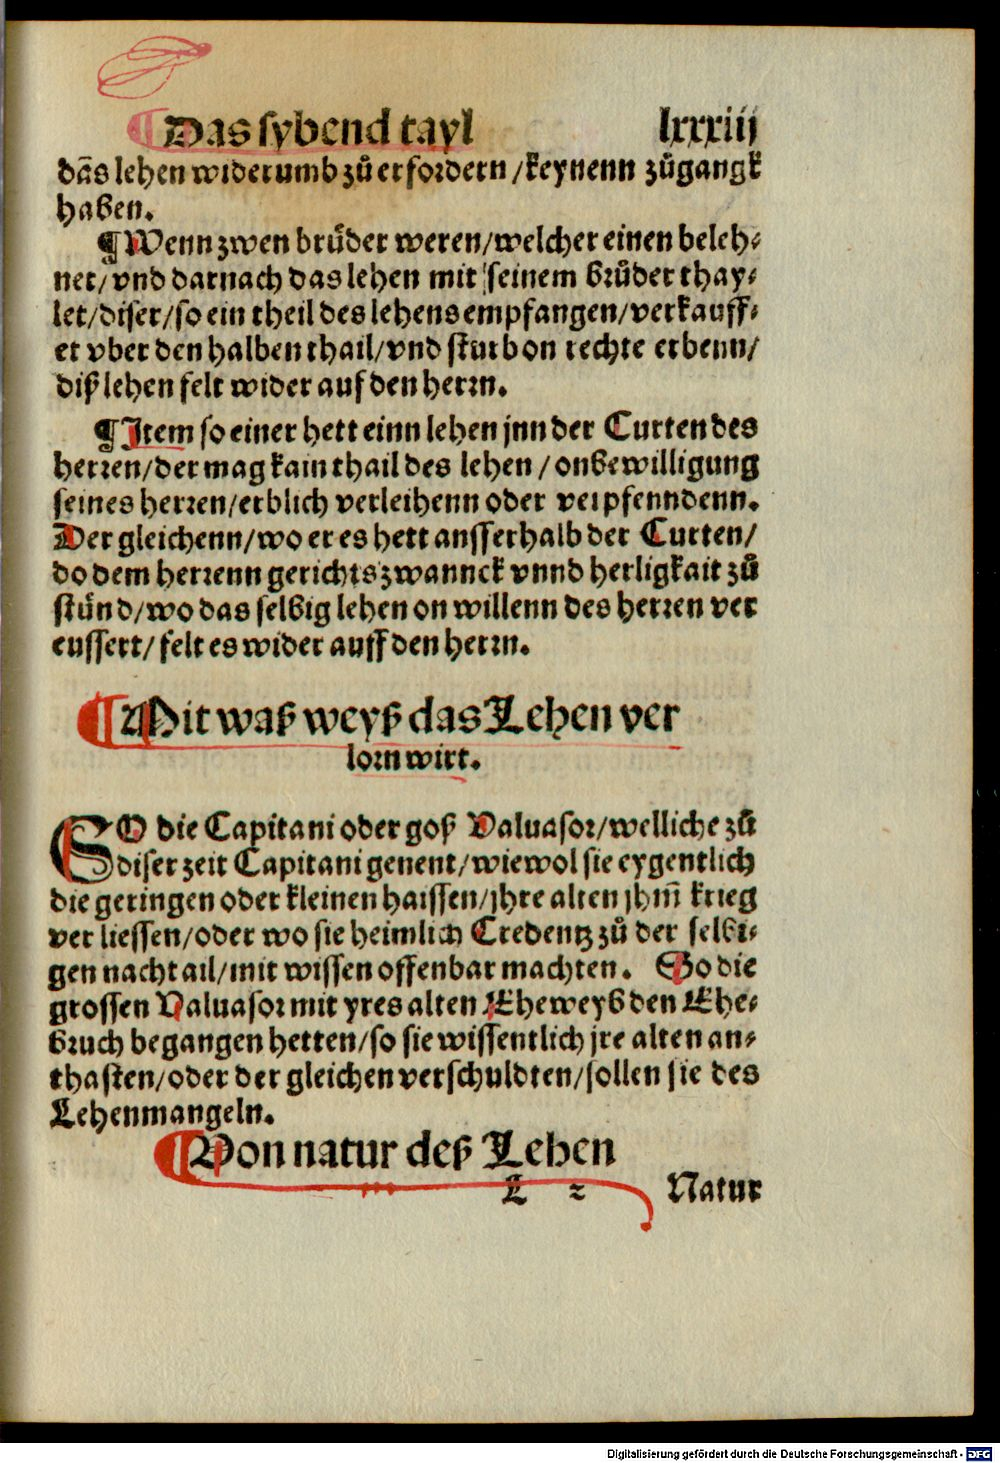 ¶ Das sybend tayl lxxxiij
dãs lehen widerumb zů erfordern / keynenn zůgangk
haben.
¶ Wenn zwen brůder weren/welcher einen beleh⸗
net/vnd darnach das lehen mit seinem brůder thay⸗
let/diser/so ein theil des lehens empfangen/verkauff⸗
et vber den halben thail/vnd sturb on rechte erbenn/
diß lehen felt wider auf den herrn.
¶ Item so einer hett einn lehen jnn der Curten des
herren/der mag kain thail des lehen / on bewilligung
seines herren/erblich verleihenn oder verpfenndenn.
Der gleichenn/wo er es hett ausserhalb der Curten/
do dem herrenn gerichtszwannck vnnd herligkait zů
stůnd/wo das selbig lehen on willenn des herren ver
eussert/ felt es wider auff den herrn.
¶ Mit waß weyß das Lehen ver
lorn wirt.
SO die Capitani oder goß Valuasor/welliche zů
diser zeit Capitani genent/wiewol sie eygentlich
die geringen oder kleinen haissen/jhre alten jhm̃ krieg
ver liessen/oder wo sie heimlich Credentz zů der selbi⸗
gen nachtail/mit wissen offenbar machten. So die
grossen Valuasor mit yres alten Eheweyb den Ehe⸗
bruch begangen hetten/so sie wissentlich jre alten an⸗
thasten/oder der gleichen verschuldten/sollen sie des
Lehen mangeln.
¶ Von natur deß Lehen
L 2 Natur
Digitalisierung gefördert durch die Deutsche Forschungsgemeinschaft - DFG